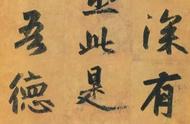 深有
此是
吾德